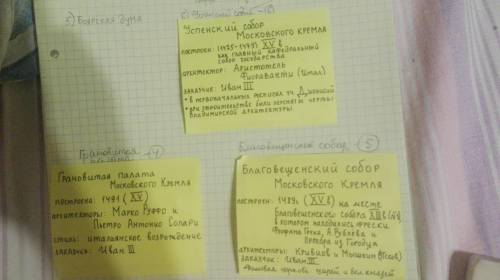 3) Боярская дума
Успенский собор
Московского Кремля
построен: (1475-1479) XV в
как главный кафедральный
собор государства
архитектор: Аристотель
Фиораванти (Итал)
заказчик: Иван III
• в первоначальных росписях уч. Дионисий
• при строительстве были черты
Владимирской архитектуры.
Грановитая
палата
Благовещенский собор (5)
Грановитая палата
Московского Кремля
построена: 1491 (XV)
архитекторы: Марко Руффо и
Пьетро Антонио Солари
стиль: итальянское возрождение
заказчик: Иван III
Благовещенский собор
Московского Кремля
построен: (XV в) на месте
Благовещенского собора
в котором находились фрески
Феофана Грека, А. Рублёва и
Прохора из Городца
архитекторы: Кривцов и Мышкин (Псков)
заказчик: Иван III
церковь царей и вел. князей